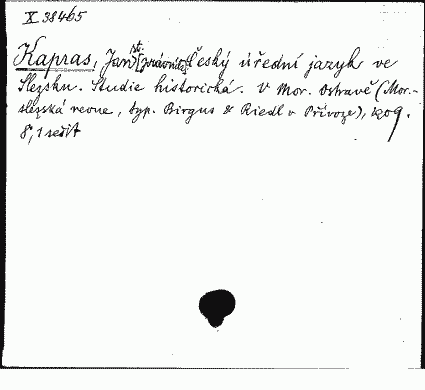 X 38465
Kapras, Jan st. [právník] Český úřední jazyk ve
Slezsku. Studie historická. V Mor. Ostravě (Mor.-
slezská revue, typ. Birgus & Riedl v Přívoze), 1909.
8°, 1 sešit